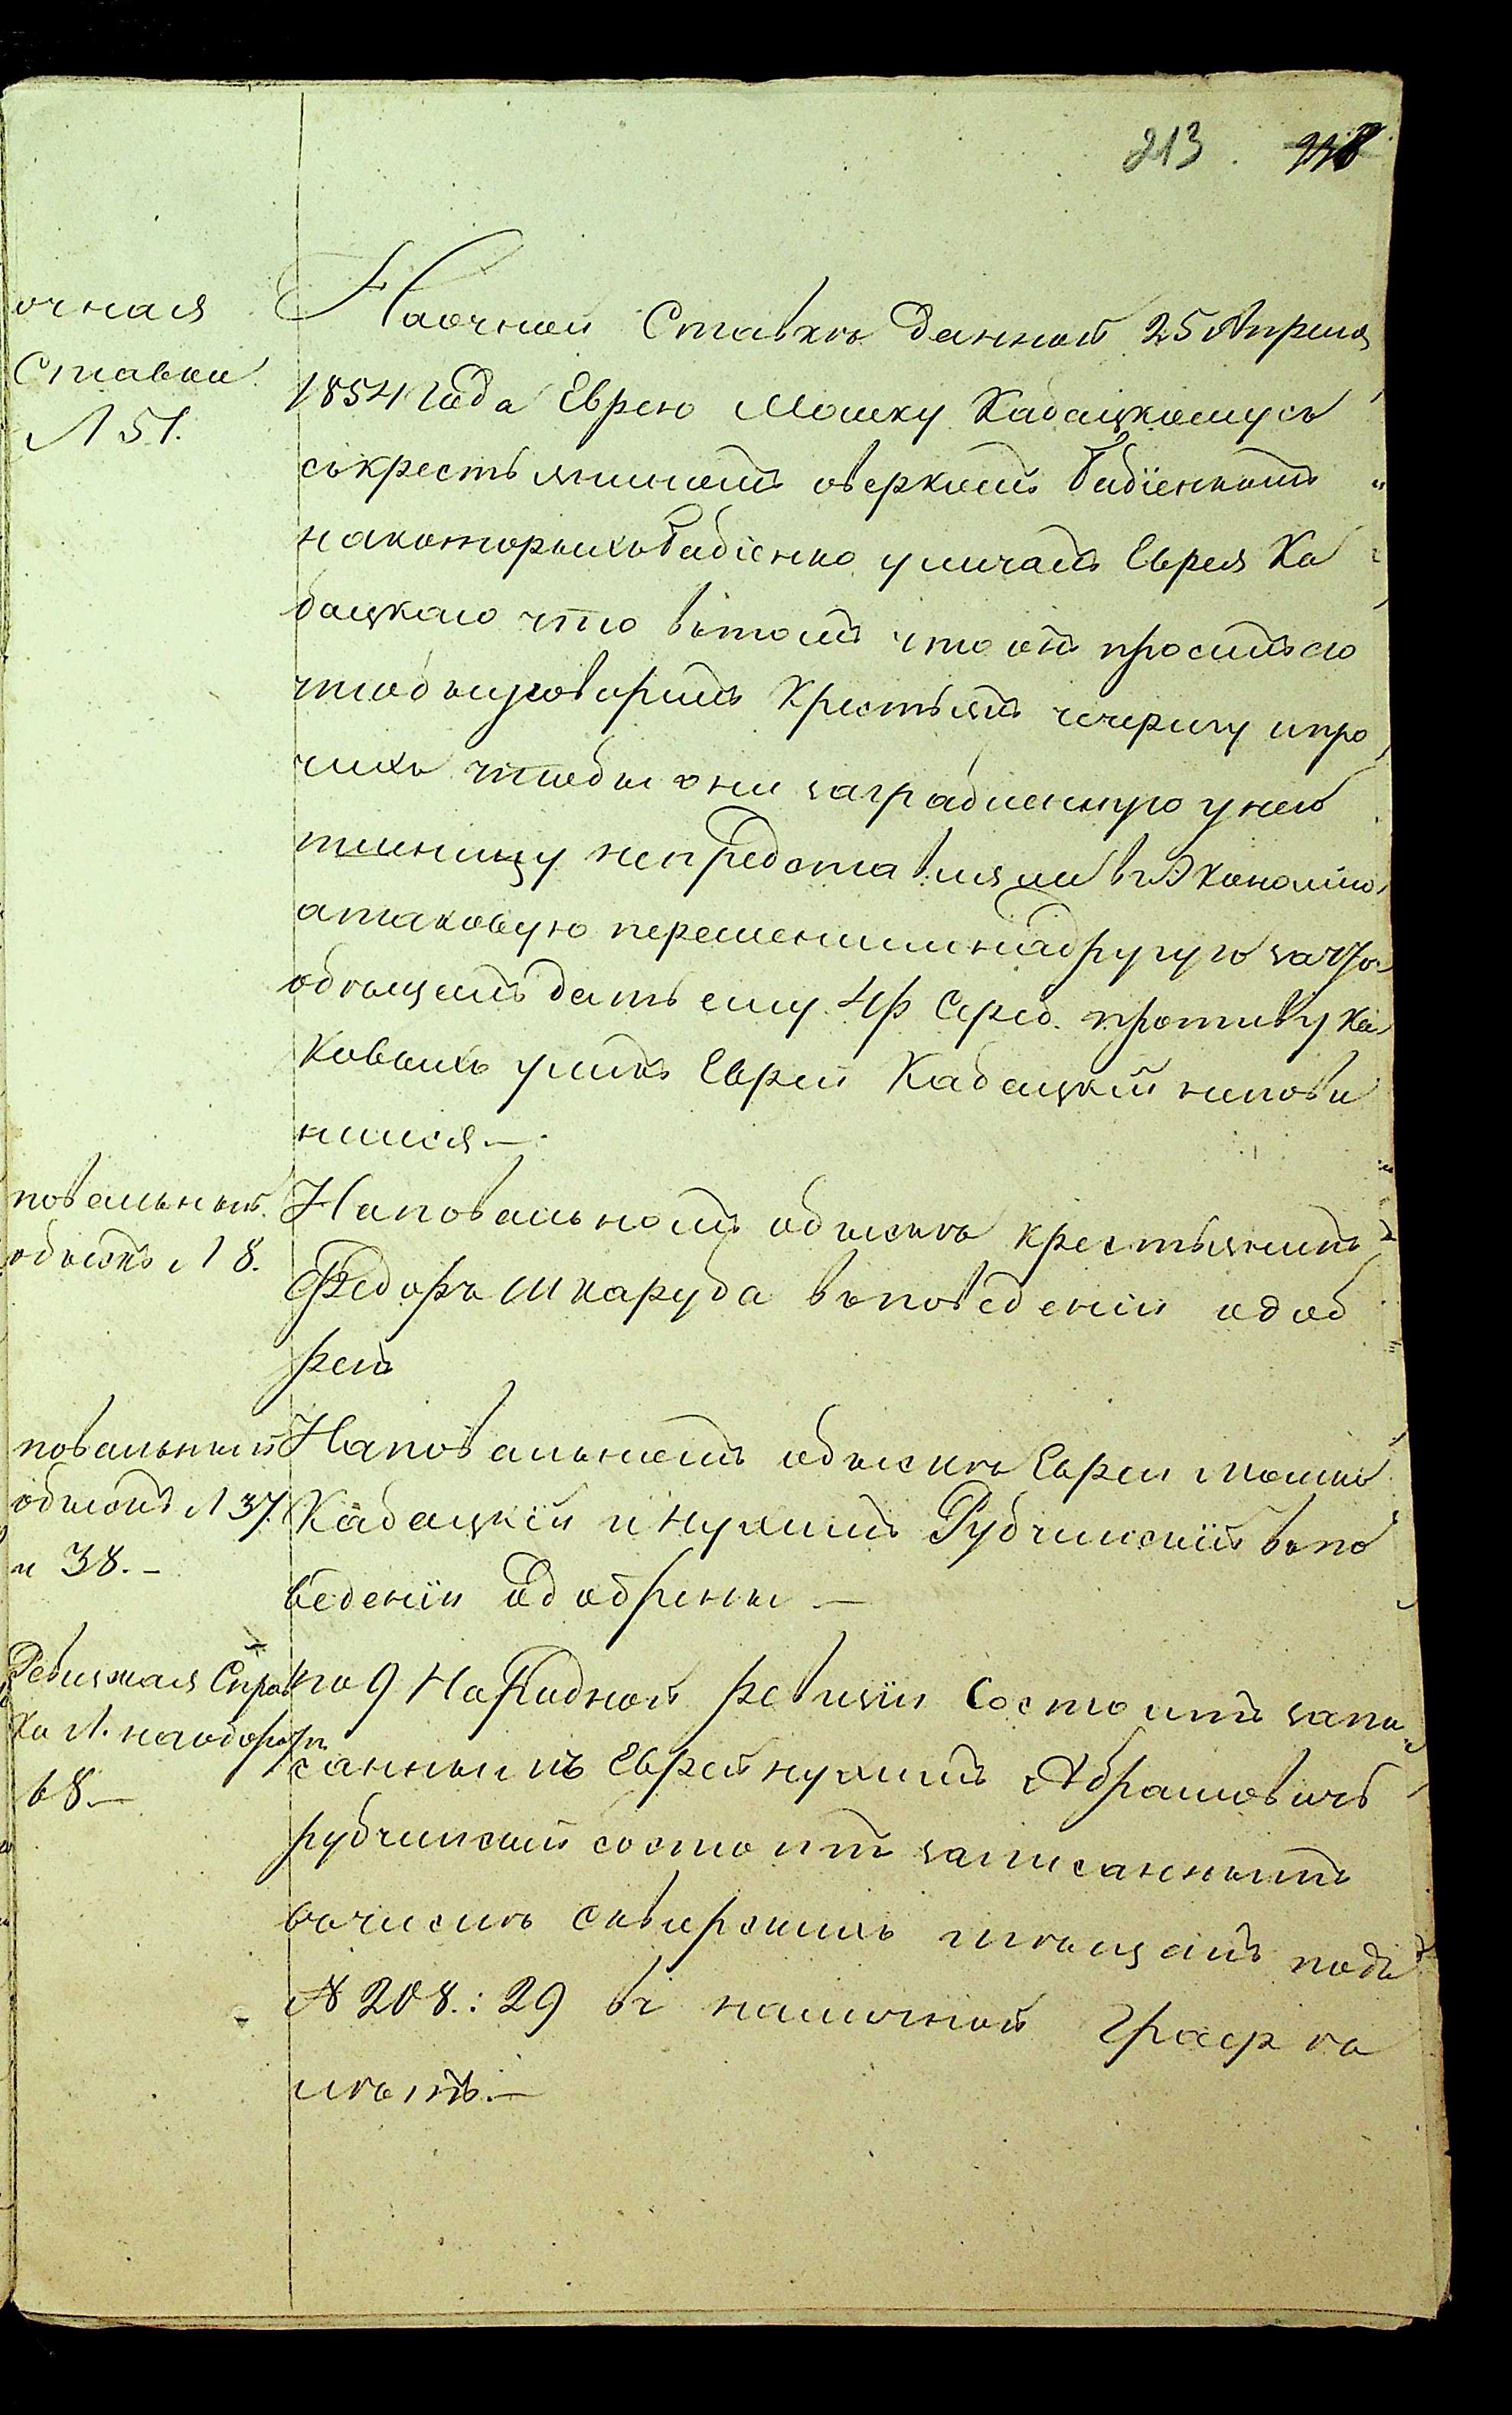 213. 218
очная
Ставка
Л 51.
На очной Ставкѣ данной 25 Апреля
1854 Года Еврею Мошку Кабацкому съ
съ крестьяниномъ оверкомъ Бабіенкомъ
на которыхъ Бабіенко уличалъ Еврея Ка
бацкаго что въ томъ что онъ просилъ его
чтобы уговорилъ Крестьянъ чечерпу и про
чихъ чтобы они заграбленную у него
пшеницу непредставляли въ Экономію
а таковую переменили на другую за что
обѣщалъ дать ему 4 р Сереб. противу ка
ковыхъ уликъ Еврей Кабацкій неповинился.—
повальный
обыскъ Л 8.
На повальномъ обыскѣ крестьянинъ
Федоръ Шкаруба въ поведеніи одоб
ренъ
повальный
обыскъ Л 37.
и 38.—
На повальномъ обыскѣ Евреи Мошко
Кабацкій и Нухимъ Рубчинскій въ по
веденіи одобрены —
Ревизкая Справ
ка Л. на оборотѣ
68—
по 9 Народной ревизіи состоитъ запи
саннымъ Еврей нухимъ Абрамовичъ
рубчинский состоитъ записаннымъ
въ числѣ сквирскихъ мѣщанъ подъ
№ 208.: 29 въ наличной Графѣ
лѣтъ.—